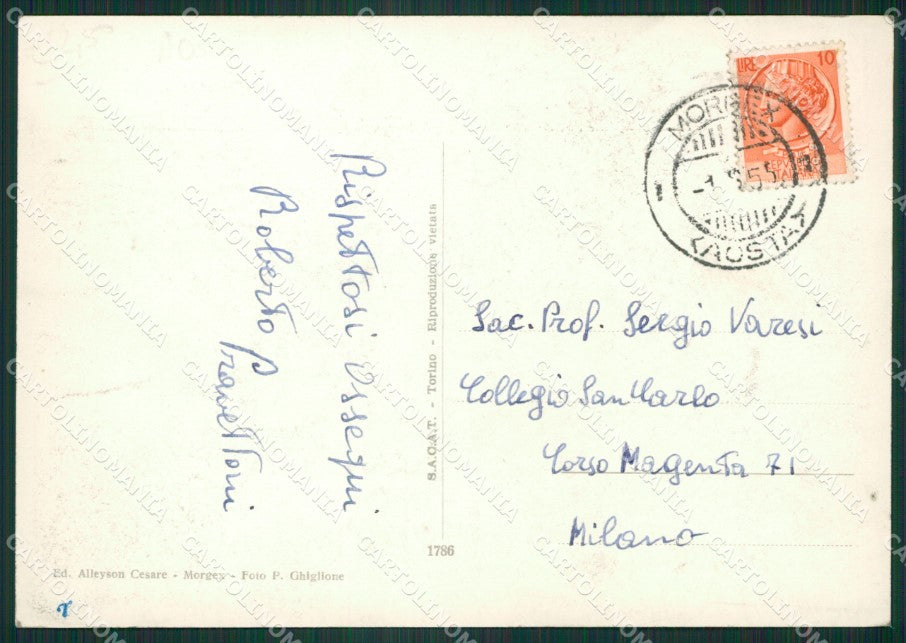 Rispettosi Ossequi
Roberto Pravettoni
S.A.C.A.T. - Torino - Riproduzione vietata
1786
Ed. Alleyson Cesare - Morgex - Foto P. Ghiglione
LIRE 10
MORGEX
(AOSTA)
Sac. Prof. Sergio Varesi
Collegio San Carlo
Corso Magenta 71
Milano
CARTOLINOMANIA